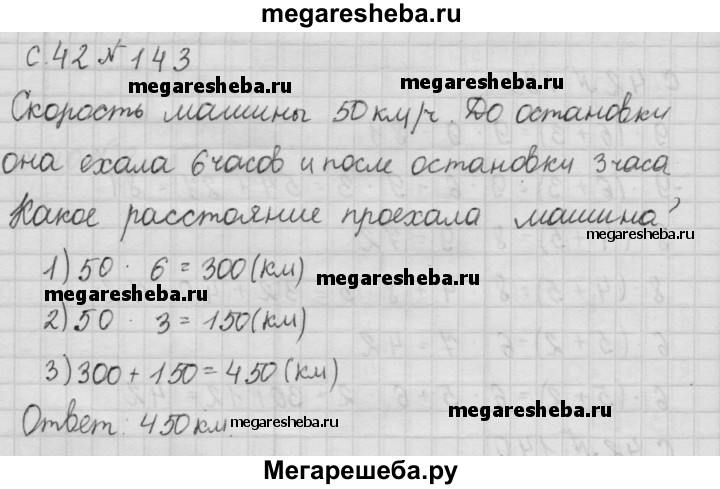 megaresheba.ru
с. 42 № 143
megaresheba.ru megaresheba.ru
Скорость машины 50 км/ч. До остановки
она ехала 6 часов и после остановки 3 часа
Какое расстояние проехала машина?
megaresheba.ru
1) 50 · 6 = 300 (км)
megaresheba.ru
megaresheba.ru
2) 50 · 3 = 150 (км)
3) 300 + 150 = 450 (км)
Ответ: 450 км.
megaresheba.ru megaresheba.ru
Мегарешеба.ру